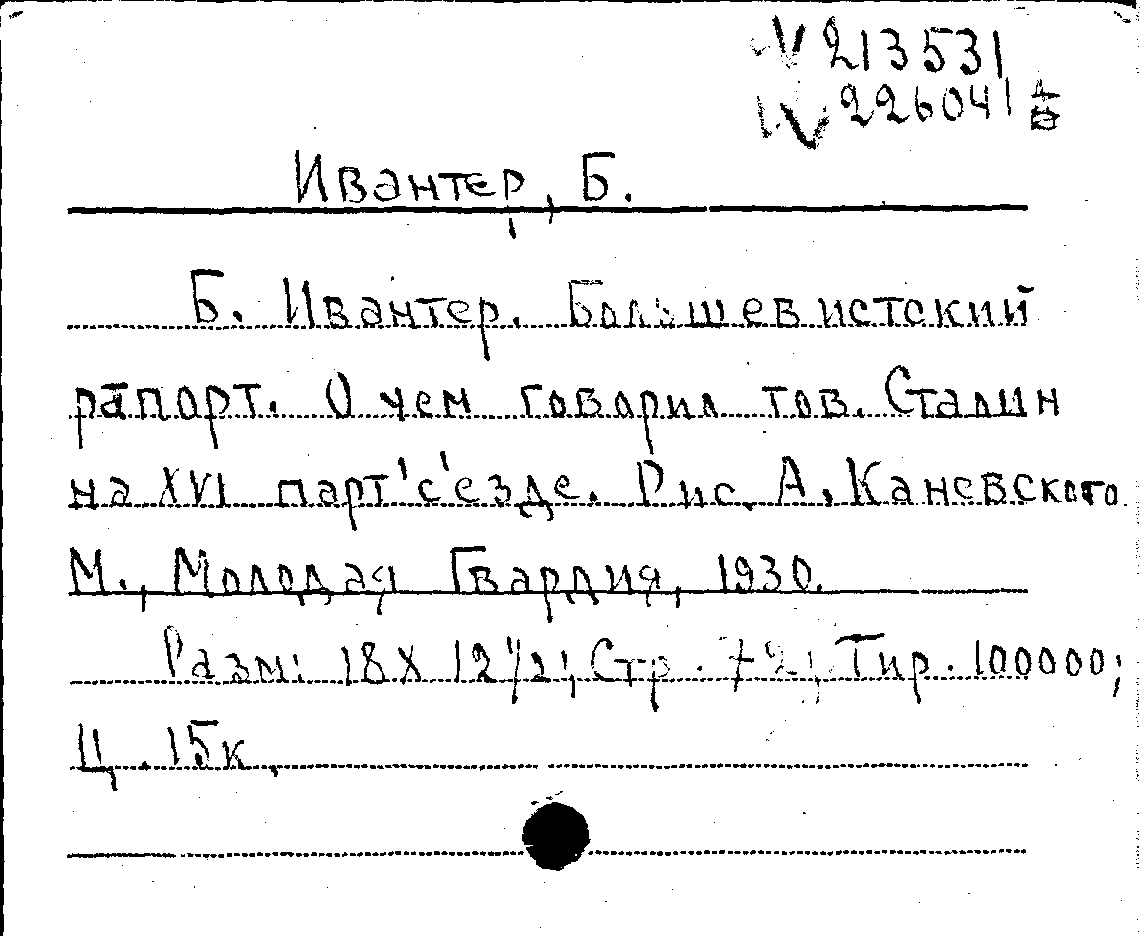 V 213531
V 226041
Ивантер, Б.
Б. Ивантер. Большевистский
рапорт. О чем говорил тов. Сталин
на XVI парт'с'езде. Рис. А. Каневского
М., Молодая Гвардия, 1930.
Разм: 18X 12 1/2; Стр. 72; Тир. 100000;
Ц. 15к.